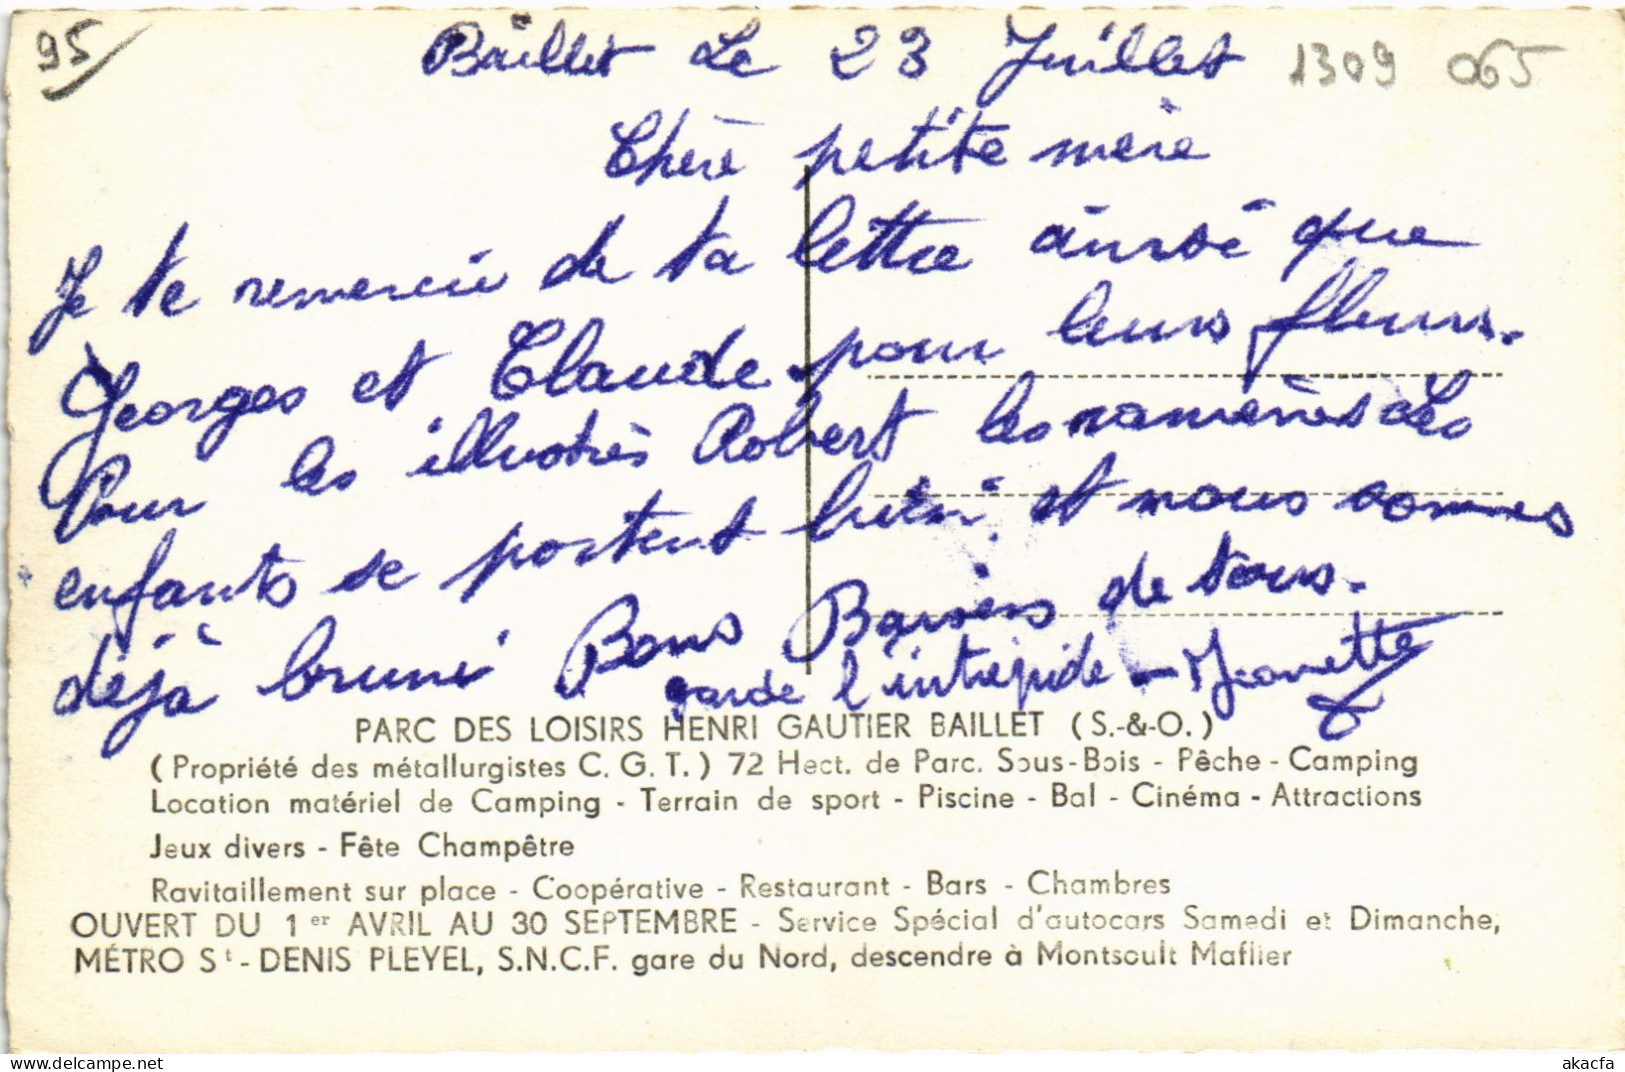 95
Baillet Le 23 Juillet
1309 065
Chère petite mère
Je te remercie de ta lettre ainsi que
Georges et Claude pour leurs fleurs.
Pour les illustrés Robert les ramènera Les
enfants se portent bien et nous sommes
déjà bruni Bons Baisers de tous.
garde l'intrépide - Jeanette
PARC DES LOISIRS HENRI GAUTIER BAILLET (S.-&-O.)
(Propriété des métallurgistes C. G. T.) 72 Hect. de Parc. Sous-Bois - Pêche - Camping
Location matériel de Camping - Terrain de sport - Piscine - Bal - Cinéma - Attractions
Jeux divers - Fête Champêtre
Ravitaillement sur place - Coopérative - Restaurant - Bars - Chambres
OUVERT DU 1er AVRIL AU 30 SEPTEMBRE - Service Spécial d'autocars Samedi et Dimanche,
MÉTRO St-DENIS PLEYEL, S.N.C.F. gare du Nord, descendre à Montsoult Maflier
akacfa